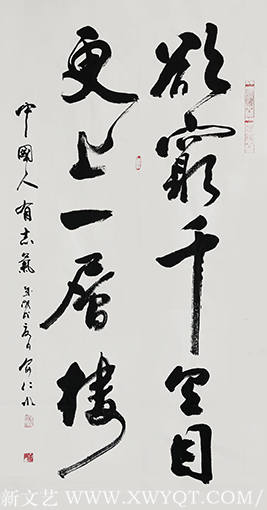 欲窮千里目
更上一層樓
中國人有志氣
新文艺 WWW.XWYQT.COM/